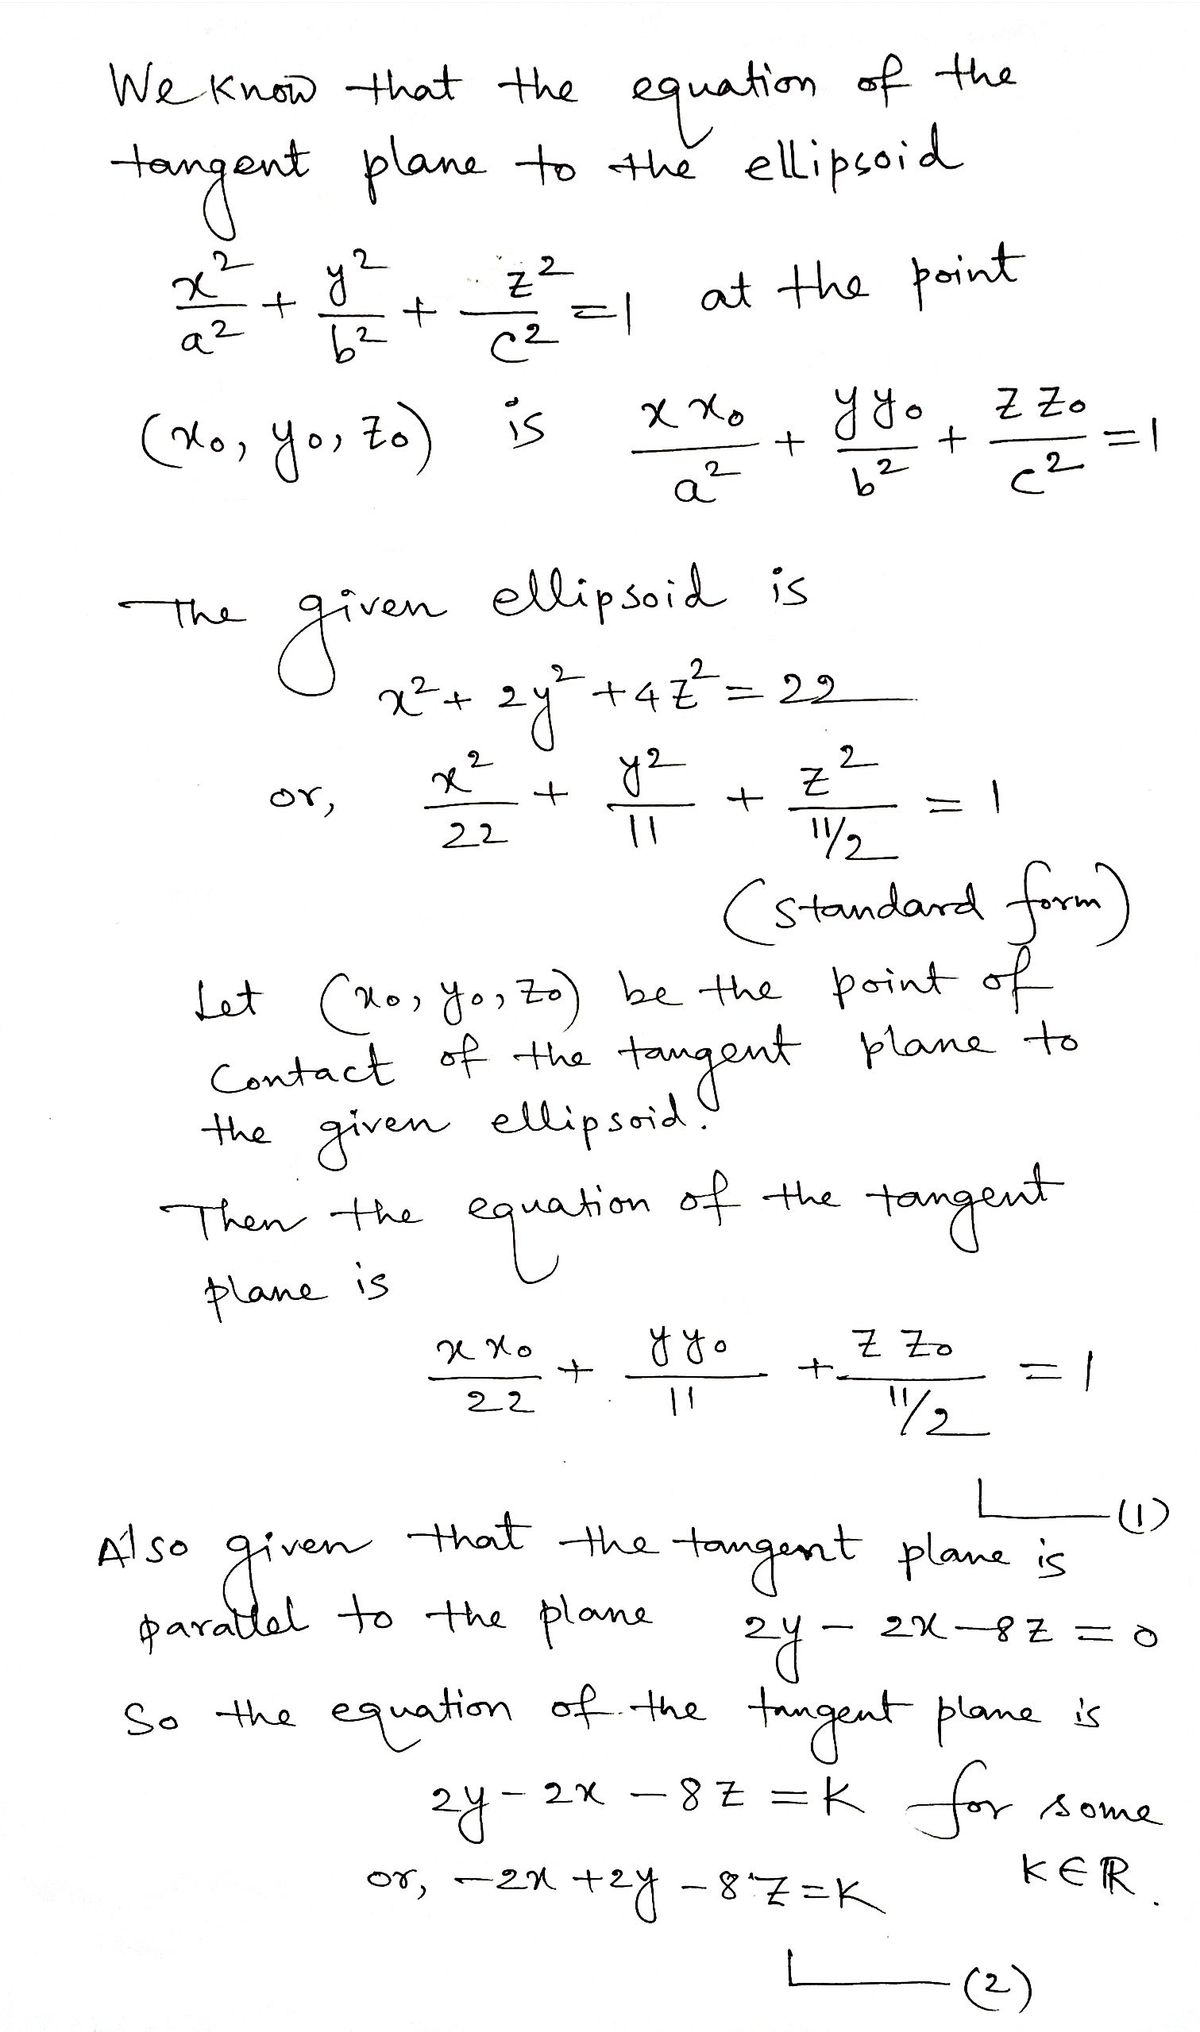 We know that the equation of the
tangent plane to the ellipsoid
x²/a² + y²/b² + z²/c² = 1 at the point
(x₀, y₀, z₀) is xx₀/a² + yy₀/b² + zz₀/c² = 1
The given ellipsoid is
x² + 2y² + 4z² = 22
or, x²/22 + y²/11 + z²/(11/2) = 1
(standard form)
Let (x₀, y₀, z₀) be the point of
Contact of the tangent plane to
the given ellipsoid.
Then the equation of the tangent
plane is
xx₀/22 + yy₀/11 + zz₀/(11/2) = 1
(1)
Also given that the tangent plane is
parallel to the plane 2y - 2x - 8z = 0
So the equation of the tangent plane is
2y - 2x - 8z = K for some
or, -2x + 2y - 8z = K K ∈ ℝ.
(2)